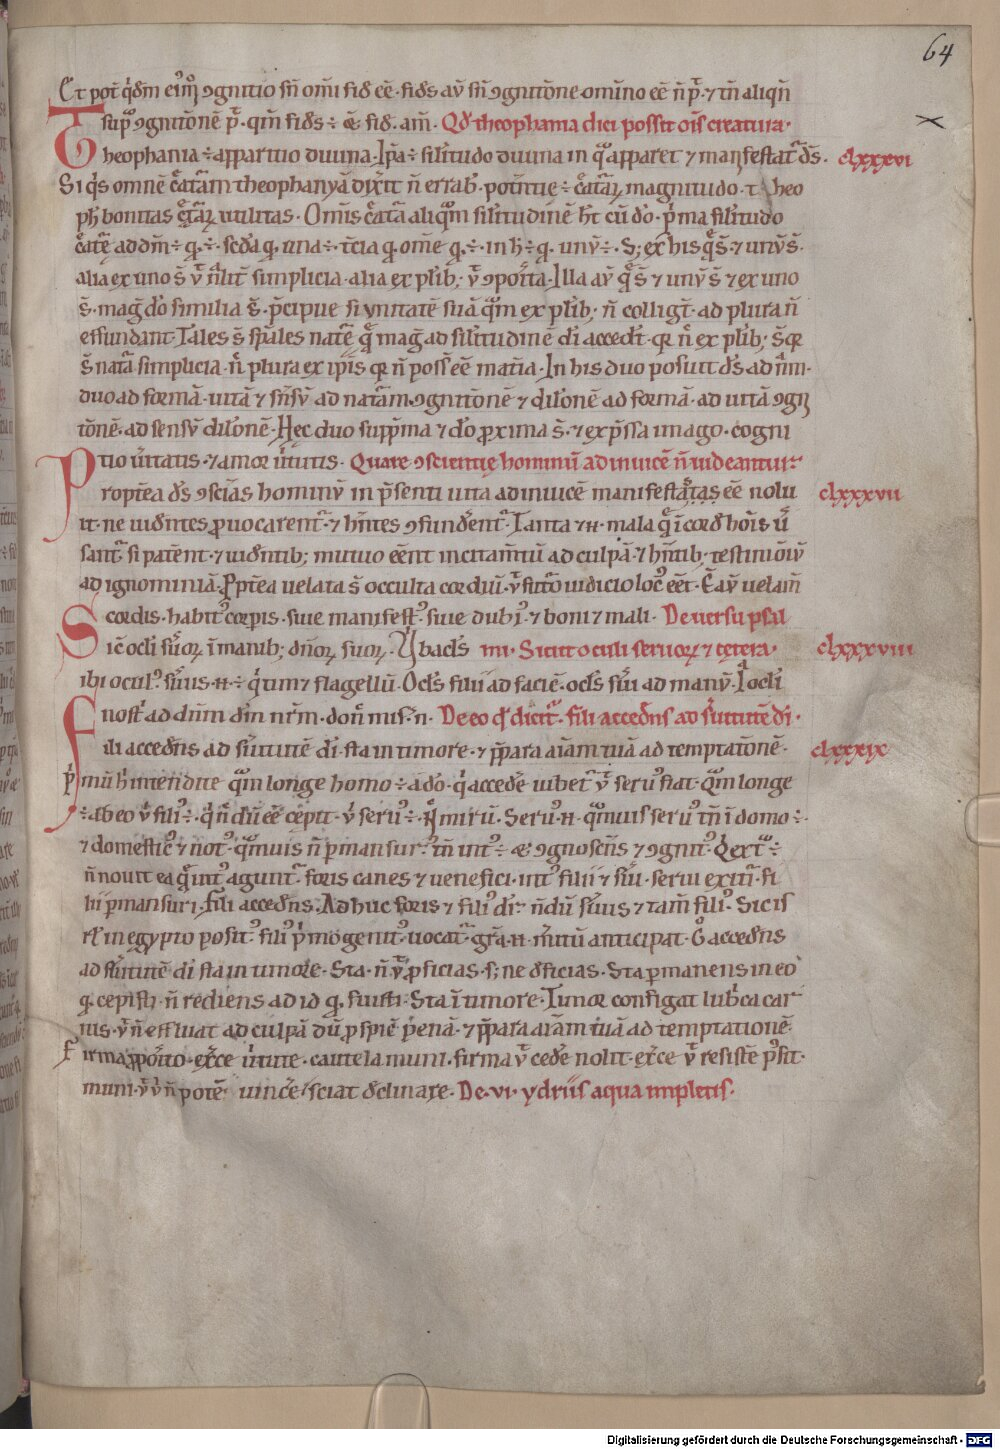 64
Et pot̄ q̇dm̄ eiꝰmōi ꝯgnitio sn̄ om̄i fid ēē · fides aū sn̄ ꝯgnitōne omīno ēē n̄ p̄ · ⁊ tn̄ aliqn̄
sup̄ ꝯgnitōnē p̄ · qm̄ fides ÷ & fid. am̄. Qđ theophania dici possit oīs creatura ·
Theophania ÷ apparitio diuina · Ip̄a ÷ silitudo diuina in qͦ apparet ⁊ manifestat᷑ ds̄ · clxxxvi
Si q̇s omnē c̄atām theophanyā dixit n̄ errab̄ · potn̄tię ÷ c̄atāꝝ magnitudo · theo
ph̄ bonitas c̄tāꝝ utilitas · Omīs c̄atā aliqͣm silitudinē hт̄ cū do · p̄ma silitudo
c̄atę ad dm̄ ÷ q̨ ÷ · scđa q̨ una ÷ · tc̄ia q̨ om̄e q̨ ÷ · in h̄ ÷ q̨ unū ÷ · S; ex his quę s̄ · ⁊ unū s̄ ·
alia ex uno s̄ ū n̄lit̄ simplicia · alia ex plib; ū ꝯpoīta · Illa aū quę s̄ ⁊ unū s̄ ⁊ ex uno
s̄ · mag̊ do similia s̄ · p̄cipue si unitatē suā qͣm ex plib; n̄ colligt̄ · ad plura n̄
effundant · Tales s̄ sp̄ales natę̄ quę mag̊ ad silitudinē di accedт̄ · qꝛ n̄ ex plib; s̄ qꝛ
s̄ natā simplicia · n̄ plura ex ipīs qꝛ n̄ poss̄ ēē mat̄ia · In his duo posuit ds̄ ad n̄m ·
duo ad formā · uitā ⁊ sn̄sū ad natām · ꝯgnitōnē ⁊ dilōnē ad formā · ad uitā ꝯgni
tōnē · ad sensū dilōnē · Hec duo supp̄ma ⁊ do proxima s̄ · ⁊ exp̄ssa imago · cogni
tio ūitatis · ⁊ amor ūtutis · Quare ꝯscientię hominū adinuicē n̄ uideantur
Proptēa ds̄ ꝯsciās hominū in p̄senti uita adinuicē manifestātas ēē nolu clxxxvii
it · ne uidn̄tes prouocarent᷑ · ⁊ hn̄tes ꝯfundēnt᷑ · Tanta ⁊н̄ · mala quę ī corđ hoīs ū
sant᷑ · si patēnt · ⁊ uidn̄tib; mutuo ēēnt incitam̄tū ad culpā · ⁊ hn̄tib; testimōiū
ad ignominiā · Ppt̄ea uelata s̄ occulta corđiū · ū futo iudicio locꝰ ēēt · Ē aū uelam̄
cordis · habitꝰ corpis · siue manifestꝰ · siue dubiꝰ · ⁊ boni ⁊ mali · De uersu psal
Sic̄ ocli sūoꝝ ī manib; dn̄oꝝ suoꝝ · Ybacls̄ mi · Sicut oculi seruoꝝ ⁊ cętera · clxxxviii
ibi oculꝰ sūus · н̄ ÷ q̇ tim⁊ flagellū · Ocls̄ filii ad faciē · ocls̄ sūi ad manū · I ocli
nostⁱ ad dn̄m dm̄ nr̄m · don̄ misꝰ · n̄ · De eo qđ dicit᷑ · fili accedēns ad sūtutē di ·
Fili accedēns ad sūtutē di · sta in timore · ⁊ ppara aīam tuā ad temptatōnē · clxxxix
p̄mū h̄ intendite qͣm longe homo ÷ a do · q̇ accedē iubet᷑ ū seruꝰ fiat · Qͣm longe
÷ ab eo ū filiꝰ ÷ · q̇ n̄ dū ēē cepit ū seruꝰ ÷ · Nͥ mirū · Seruꝰ н̄ qͣmuis seruꝰ tn̄ ī domo ÷
⁊ domesticꝰ ⁊ notꝰ · qͣmuis n̄ pmansurꝰ tn̄ intꝰ ÷ & ꝯgnoscēns ⁊ ꝯgnitꝰ · Q ext᷑ ÷
n̄ nouit ea quę intꝰ agunt᷑ · foris canes ⁊ uenefici · intꝰ filii ⁊ sūi · serui exitn̄ · fi
lii pmansuri · Fili accedēns · Adhuc foris ⁊ filiꝰ dr̄ · n̄dū sūus ⁊ tam̄ filiꝰ · Sic isr̄l
in egypto positꝰ · filiꝰ p̄mogenitꝰ uocat᷑ · gr̄a · н̄ m̄itū anticipat · Ḡ accedēns
ad sūtutē di sta in timore · Sta · n̄ ū pficias · s; ne dēficias · Sta pmanens in eo
q̨ cepisti · n̄ rediens ad id q̨ fuisti · Sta ī timore · Timor configat lubⁱca car
nis · ū n̄ effluat ad culpā dū prospic̄ penā · ⁊ ppara aīam tuā ad temptationē
Firma pposito · exc̄e ūtute · cautela muni · firma ū cedē nolit · exc̄e ū resistē possit ·
muni · ū ū n̄ potē uincē / sciat dēclinare · De · vi · ydriis aqua impletis ·
Digitalisierung gefördert durch die Deutsche Forschungsgemeinschaft - DFG